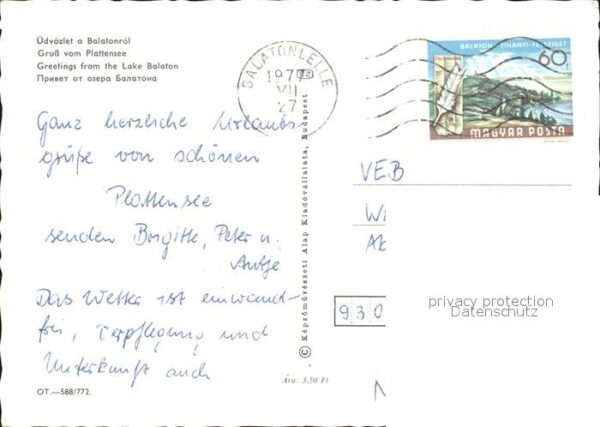 Üdvözlet a Balatonról
Gruß vom Plattensee
Greetings from the Lake Balaton
Привет от озера Балатона
BALATONLELLE
197
VII
27
BALATON - TIHANYI-FÉLSZIGET
60f
MAGYAR POSTA
Ganz herzliche Urlaubs-
grüße von schönen
Plattensee
senden Birgitte, Peter u.
Antje
Das Wetter ist einwand-
frei, Verpflegung und
Unterkunft auch.
OT.—588/772.
Ára: 3,50 Ft
© Képzőművészeti Alap Kiadóvállalata, Budapest
VEB
930
privacy protection
Datenschutz